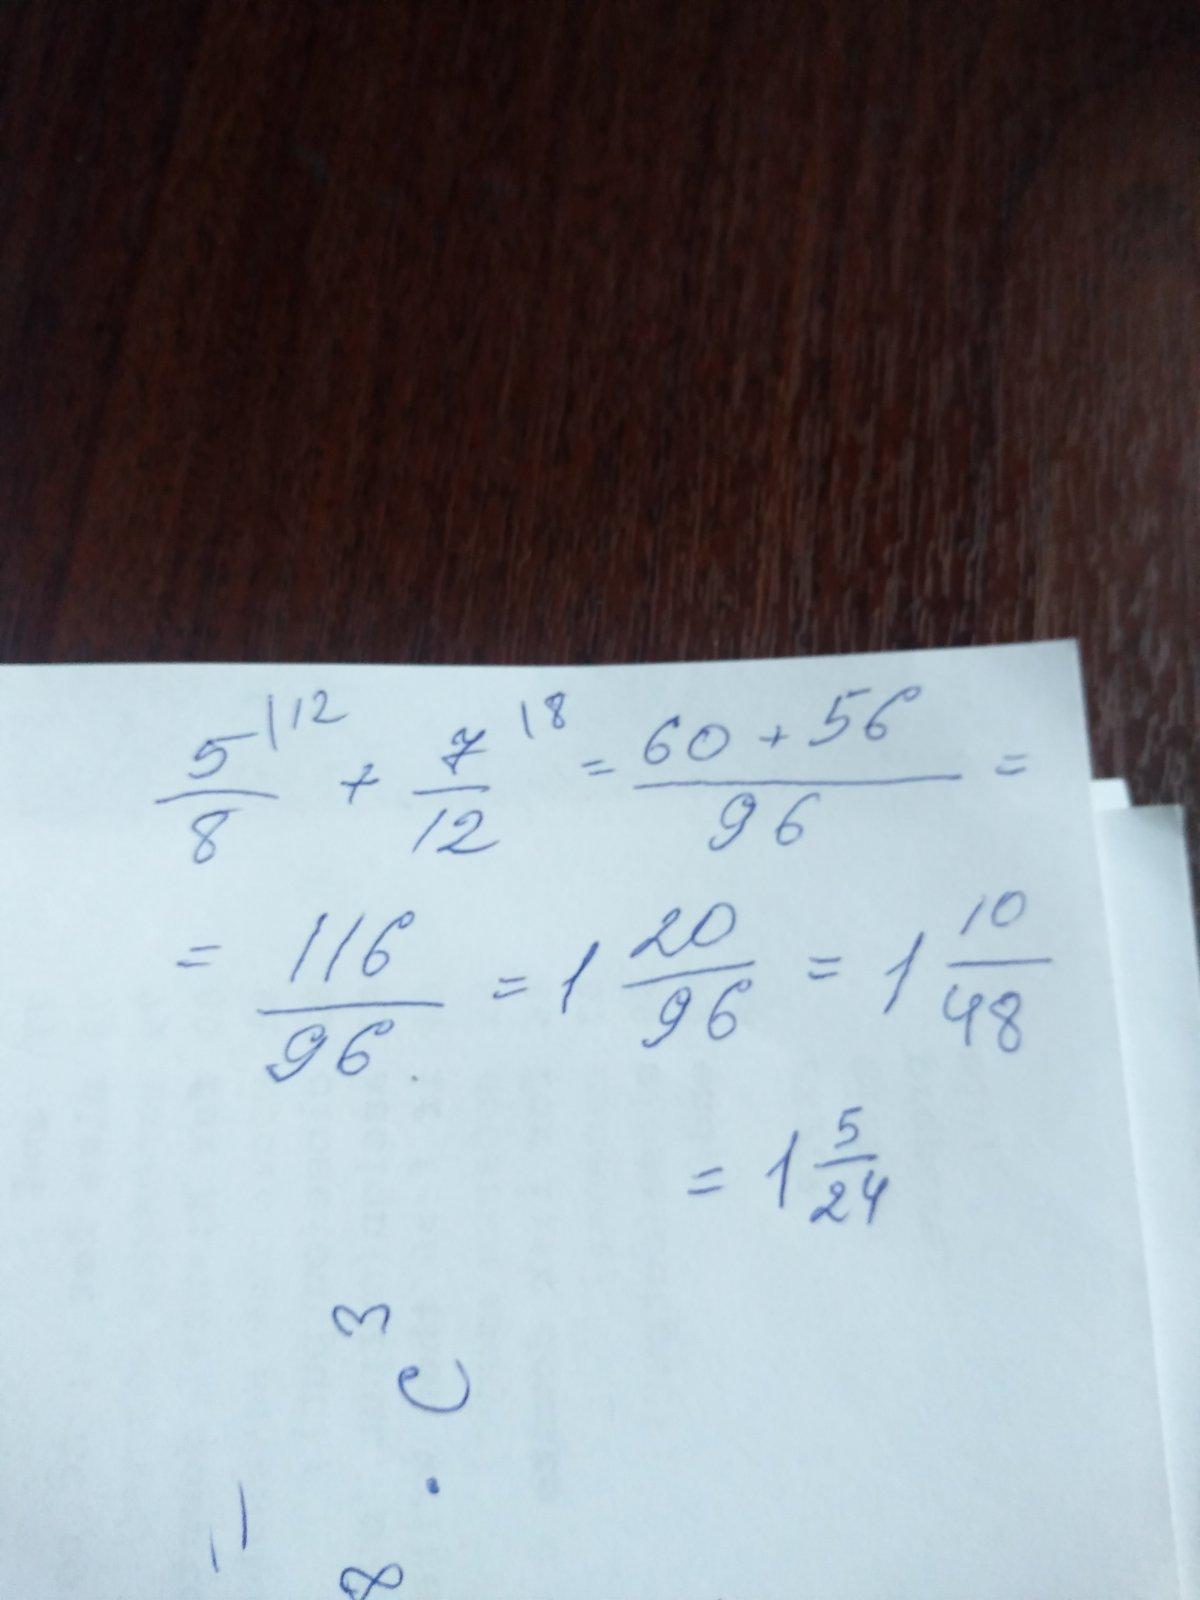 5/8 |12 + 7/12 |8 = 60 + 56/96 =
= 116/96 = 1 20/96 = 1 10/48
= 1 5/24